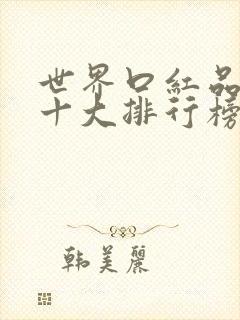 世界口红品
十大排行榜
韩美丽